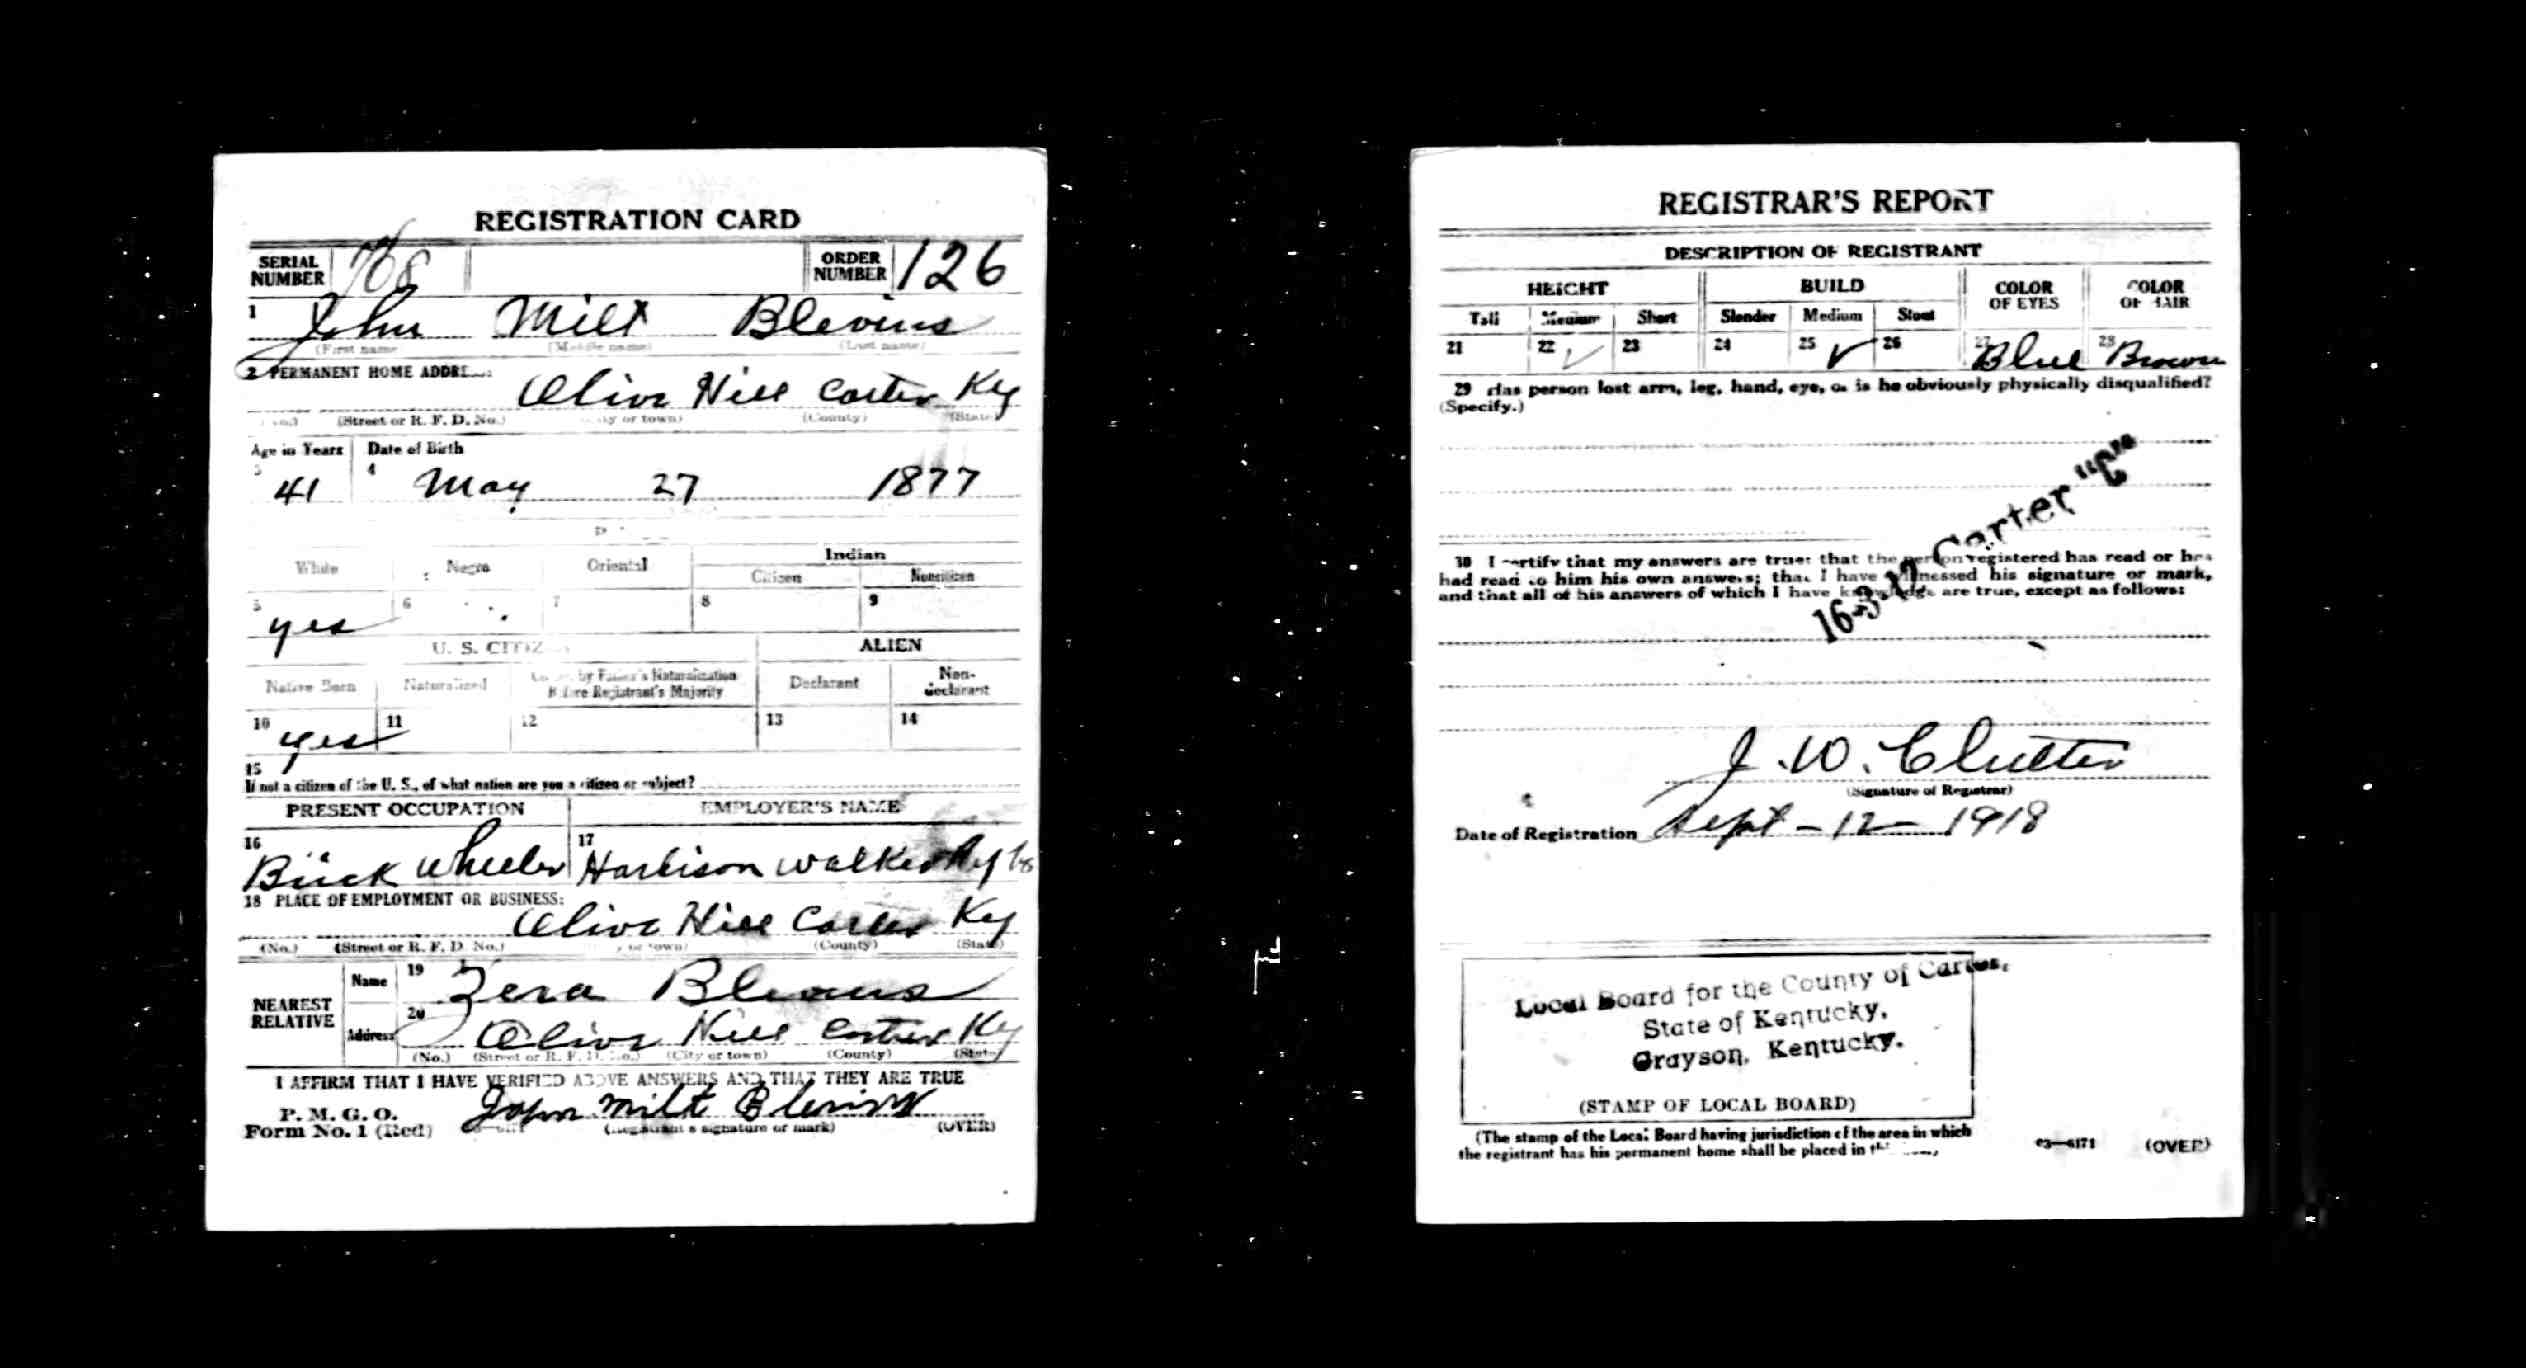 REGISTRATION CARD
SERIAL NUMBER 768 ORDER NUMBER 126
1 John Milt Blevins
(First name (Middle name) (Last name)
2 PERMANENT HOME ADDRE
Olive Hill Carter Ky
(Street or R. F. D. No.) or town) (County) (State)
Age in Years Date of Birth
41 4 May 27 1877
White Negro Oriental Indian
Citizen Noncitizen
5 6 7 8 9
yes
U. S. CITIZ ALIEN
Native Born Naturalized by Father's Naturalization Before Registrant's Majority Declarant Non-declarant
10 11 12 13 14
yes
15
If not a citizen of the U. S., of what nation are you a citizen or subject?
PRESENT OCCUPATION EMPLOYER'S NAME
16 17
Brick Wheeler Harbison Walker
18 PLACE OF EMPLOYMENT OR BUSINESS:
Olive Hill Carter Ky
(No.) (Street or R. F. D. No.) or town) (County) (State)
NEAREST RELATIVE
Name 19 Zera Blevins
Address 20 Olive Hill Carter Ky
(No.) (Street or R. F. D. No.) (City or town) (County) (State)
I AFFIRM THAT I HAVE VERIFIED ABOVE ANSWERS AND THAT THEY ARE TRUE
P. M. G. O.
Form No. 1 (Red) John Milt Blevins
(Registrant's signature or mark) (OVER)
REGISTRAR'S REPORT
DESCRIPTION OF REGISTRANT
HEIGHT BUILD COLOR OF EYES COLOR OF HAIR
Tall Medium Short Slender Medium Stout
21 22 ✓ 23 24 25 ✓ 26 27 Blue 28 Brown
29 Has person lost arm, leg, hand, eye, or is he obviously physically disqualified?
(Specify.)
16-3-12 Carter "C"
30 I certify that my answers are true; that the person registered has read or has
had read to him his own answers; that I have witnessed his signature or mark,
and that all of his answers of which I have knowledge are true, except as follows:
J. W. Clutter
(Signature of Registrar)
Date of Registration Sept - 12 - 1918
Local Board for the County of Carter,
State of Kentucky,
Grayson, Kentucky.
(STAMP OF LOCAL BOARD)
(The stamp of the Local Board having jurisdiction of the area in which
the registrant has his permanent home shall be placed in
03—6171 (OVER)